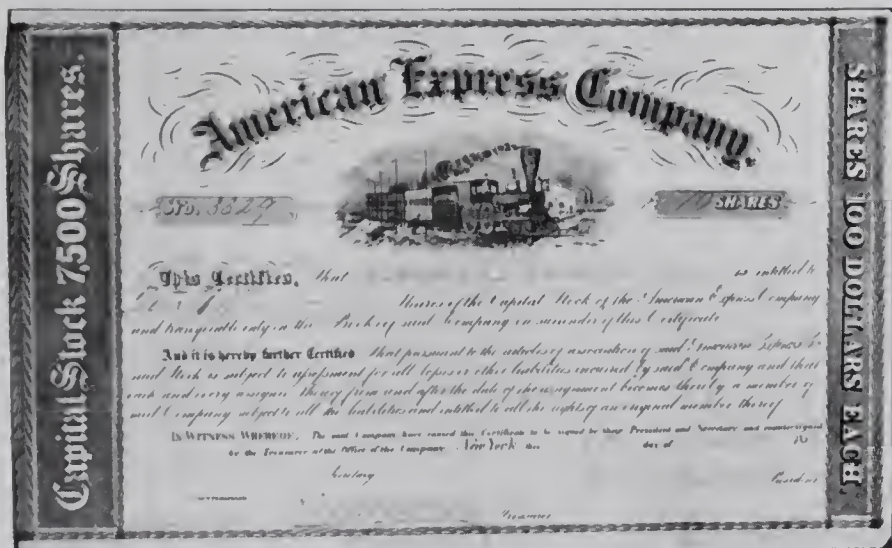 Capital Stock 7,500 Shares.
American Express Company.
No. 3329
SHARES
This Certifies, that is entitled to
Shares of the Capital Stock of the American Express Company
and transferable only on the Books of said Company on surrender of this Certificate
And it is hereby further Certified that pursuant to the articles of association of said American Express Co
said Stock is subject to assessment for all losses or other liabilities incurred by said Company and that
each and every assignee thereof from and after the date of the assignment becomes thereby a member of
said Company subject to all the liabilities and entitled to all the rights of an original member thereof
IN WITNESS WHEREOF, The said Company have caused this Certificate to be signed by their President and Secretary and countersigned
by the Treasurer at the Office of the Company New York this day of 18
Secretary President
Treasurer
SHARES 100 DOLLARS EACH.